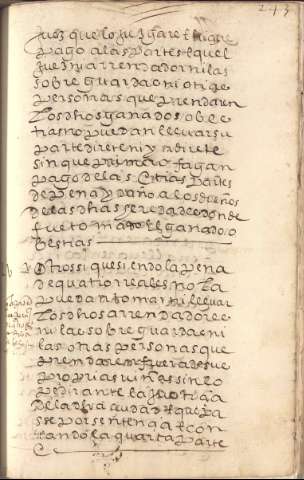 Juez que lo juzgare e hague
pago a las partes e quel
juez ni arrendador ni las
sobre guardas ni otras
personas que prendaren
los dhos ganados o bes
tias no puedan lleuar su
parte direte ni yndirete
sin que primero fagan
pago de las otras partes
de pena y daño a los dueños
de las dhas heredades donde
fue tomado el ganado o
bestias
Otrossi que siendo la pena
de quatro reales no la
puedan tomar ni lleuar
los dhos arrendadores
ni las sobre guardas ni
las otras personas que
prendaren fuera de sus
proprias viñas sin lo
pedir ante la justiçia
de la dha ciudad e que pa
se por sentençia e con
tando la quarta parte